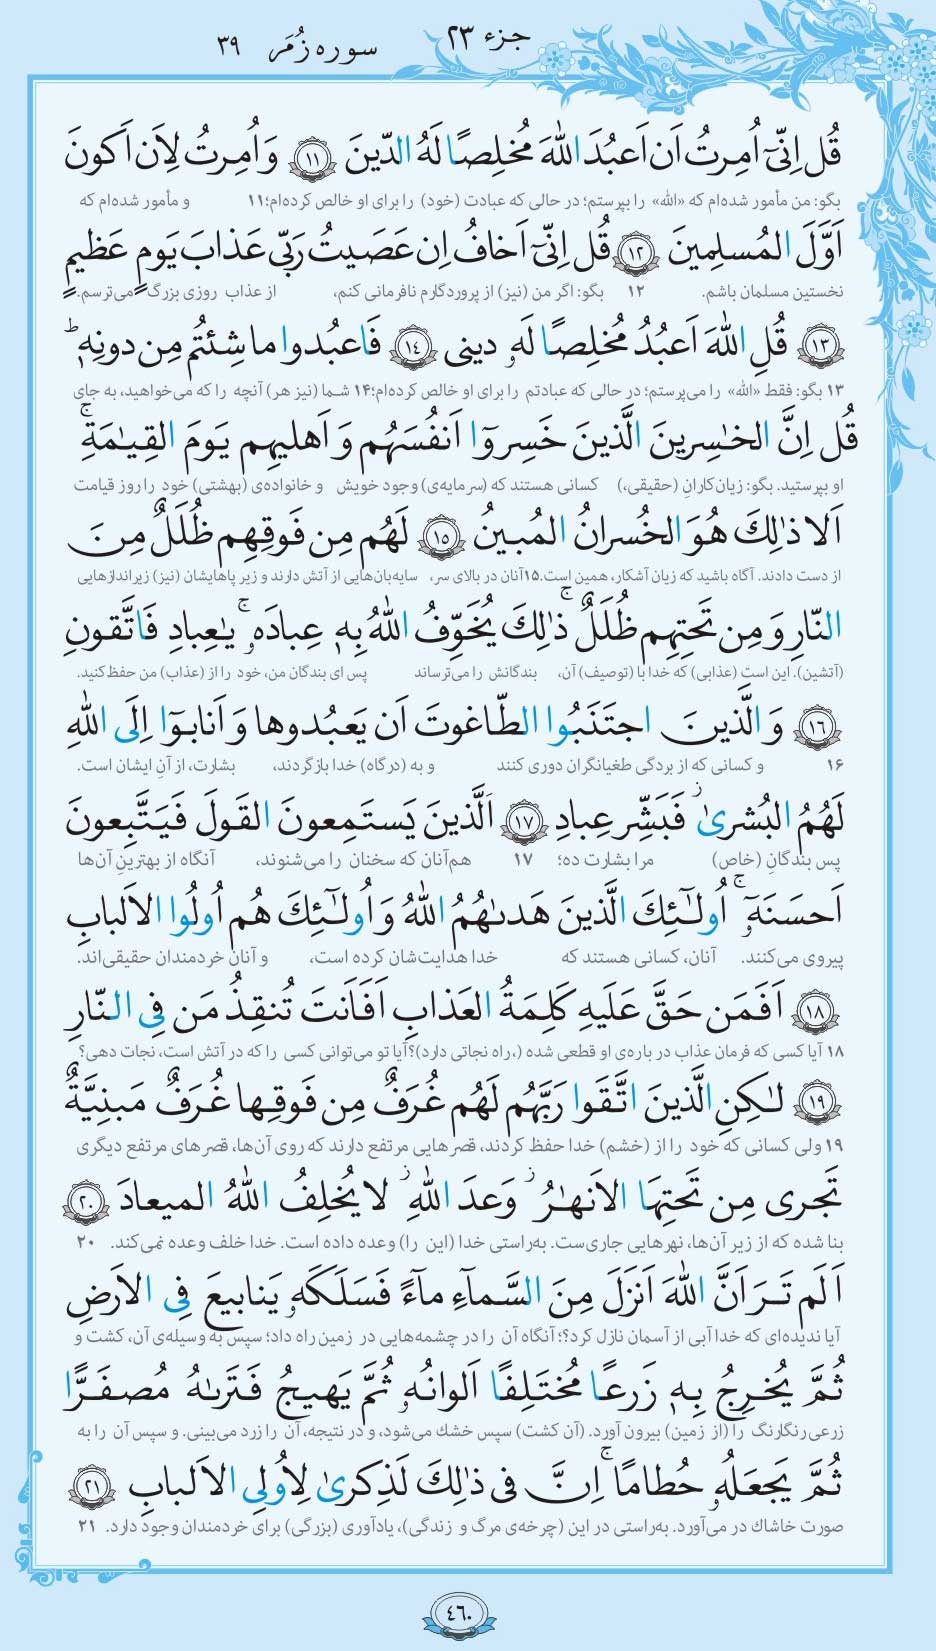 جزء ۲۳
سوره زُمَر ۳۹
قُل اِنّیٓ اُمِرتُ اَن اَعبُدَ اللّٰهَ مُخلِصًا لَهُ الدّینَ ﴿۱۱﴾ وَ اُمِرتُ لِاَن اَکونَ
بگو: من مأمور شده‌ام که «الله» را بپرستم؛ در حالی که عبادت (خود) را برای او خالص کرده‌ام؛ ۱۱ و مأمور شده‌ام که
اَوَّلَ المُسلِمینَ ﴿۱۲﴾ قُل اِنّیٓ اَخافُ اِن عَصَیتُ رَبّی عَذابَ یَومٍ عَظیمٍ
نخستین مسلمان باشم. ۱۲ بگو: اگر من (نیز) از پروردگارم نافرمانی کنم، از عذاب روزی بزرگ می‌ترسم.
﴿۱۳﴾ قُلِ اللّٰهَ اَعبُدُ مُخلِصًا لَهٗ دینی ﴿۱۴﴾ فَاعبُدوا ما شِئتُم مِن دونِهٖ ؕ
۱۳ بگو: فقط «الله» را می‌پرستم؛ در حالی که عبادتم را برای او خالص کرده‌ام؛ ۱۴ شما (نیز هر) آنچه را که می‌خواهید، به جای
قُل اِنَّ الخٰسِرینَ الَّذینَ خَسِروٓا اَنفُسَهُم وَ اَهلیهِم یَومَ القِیٰمَةِ ۚ
او بپرستید. بگو: زیان‌کارانِ (حقیقی،) کسانی هستند که (سرمایه‌ی) وجود خویش و خانواده‌ی (بهشتی) خود را روز قیامت
اَلا ذٰلِکَ هُوَ الخُسرانُ المُبینُ ﴿۱۵﴾ لَهُم مِن فَوقِهِم ظُلَلٌ مِنَ
از دست دادند. آگاه باشید که زیان آشکار، همین است. ۱۵ آنان در بالای سر، سایه‌بان‌هایی از آتش دارند و زیر پاهایشان (نیز) زیراندازهایی
النّارِ وَ مِن تَحتِهِم ظُلَلٌ ۚ ذٰلِکَ یُخَوِّفُ اللّٰهُ بِهٖ عِبادَهٗ ۚ یٰعِبادِ فَاتَّقونِ
(آتشین). این است (عذابی) که خدا با (توصیف) آن، بندگانش را می‌ترساند پس ای بندگان من، خود را از (عذاب) من حفظ کنید.
﴿۱۶﴾ وَ الَّذینَ اجتَنَبُوا الطّاغوتَ اَن یَعبُدوها وَ اَنابوٓا اِلَی اللّٰهِ
۱۶ و کسانی که از بردگی طغیانگران دوری کنند و به (درگاه) خدا بازگردند، بشارت، از آنِ ایشان است.
لَهُمُ البُشریٰ ۚ فَبَشِّر عِبادِ ﴿۱۷﴾ اَلَّذینَ یَستَمِعونَ القَولَ فَیَتَّبِعونَ
پس بندگانِ (خاص) مرا بشارت ده؛ ۱۷ هم‌آنان که سخنان را می‌شنوند، آنگاه از بهترینِ آن‌ها
اَحسَنَهٗٓ ۚ اُولٰٓئِکَ الَّذینَ هَدىٰهُمُ اللّٰهُ وَ اُولٰٓئِکَ هُم اُولُوا الاَلبابِ
پیروی می‌کنند. آنان، کسانی هستند که خدا هدایت‌شان کرده است، و آنان خردمندان حقیقی‌اند.
﴿۱۸﴾ اَفَمَن حَقَّ عَلَیهِ کَلِمَةُ العَذابِ اَفَاَنتَ تُنقِذُ مَن فِی النّارِ
۱۸ آیا کسی که فرمان عذاب در باره‌ی او قطعی شده (، راه نجاتی دارد)؟ آیا تو می‌توانی کسی را که در آتش است، نجات دهی؟
﴿۱۹﴾ لٰکِنِ الَّذینَ اتَّقَوا رَبَّهُم لَهُم غُرَفٌ مِن فَوقِها غُرَفٌ مَبنِیَّةٌ
۱۹ ولی کسانی که خود را از (خشم) خدا حفظ کردند، قصرهایی مرتفع دارند که روی آن‌ها، قصرهای مرتفع دیگری
تَجری مِن تَحتِهَا الاَنهٰرُ ۖ وَعدَ اللّٰهِ ۖ لا یُخلِفُ اللّٰهُ المیعادَ ﴿۲۰﴾
بنا شده که از زیر آن‌ها، نهرهایی جاری‌ست. به‌راستی خدا (این را) وعده داده است. خدا خلف وعده نمی‌کند. ۲۰
اَلَم تَرَ اَنَّ اللّٰهَ اَنزَلَ مِنَ السَّمآءِ مآءً فَسَلَکَهٗ یَنابیعَ فِی الاَرضِ
آیا ندیده‌ای که خدا آبی از آسمان نازل کرد؟؛ آنگاه آن را در چشمه‌هایی در زمین راه داد؛ سپس به وسیله‌ی آن، کشت و
ثُمَّ یُخرِجُ بِهٖ زَرعًا مُختَلِفًا اَلوانُهٗ ثُمَّ یَهیجُ فَتَرىٰهُ مُصفَرًّا
زرعی رنگارنگ را (از زمین) بیرون آورد. (آن کشت) سپس خشك می‌شود، و در نتیجه، آن را زرد می‌بینی. و سپس آن را به
ثُمَّ یَجعَلُهٗ حُطامًا ۚ اِنَّ فی ذٰلِکَ لَذِکریٰ لِاُولِی الاَلبابِ ﴿۲۱﴾
صورت خاشاك در می‌آورد. به‌راستی در این (چرخه‌ی مرگ و زندگی)، یادآوری (بزرگی) برای خردمندان وجود دارد. ۲۱
۴۶۰